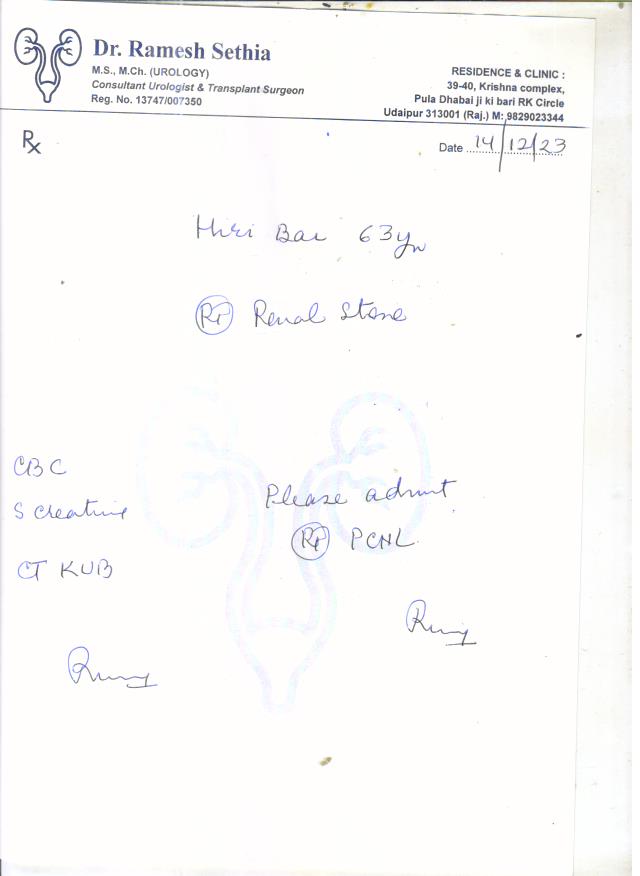 Dr. Ramesh Sethia
M.S., M.Ch. (UROLOGY)
Consultant Urologist & Transplant Surgeon
Reg. No. 13747/007350
RESIDENCE & CLINIC :
39-40, Krishna complex,
Pula Dhabai ji ki bari RK Circle
Udaipur 313001 (Raj.) M: 9829023344
Rx
Date 14/12/23
Hiri Bai 63yr
Rt Renal Stone
CBC
S Creatine
CT KUB
Please admit
Rt PCNL